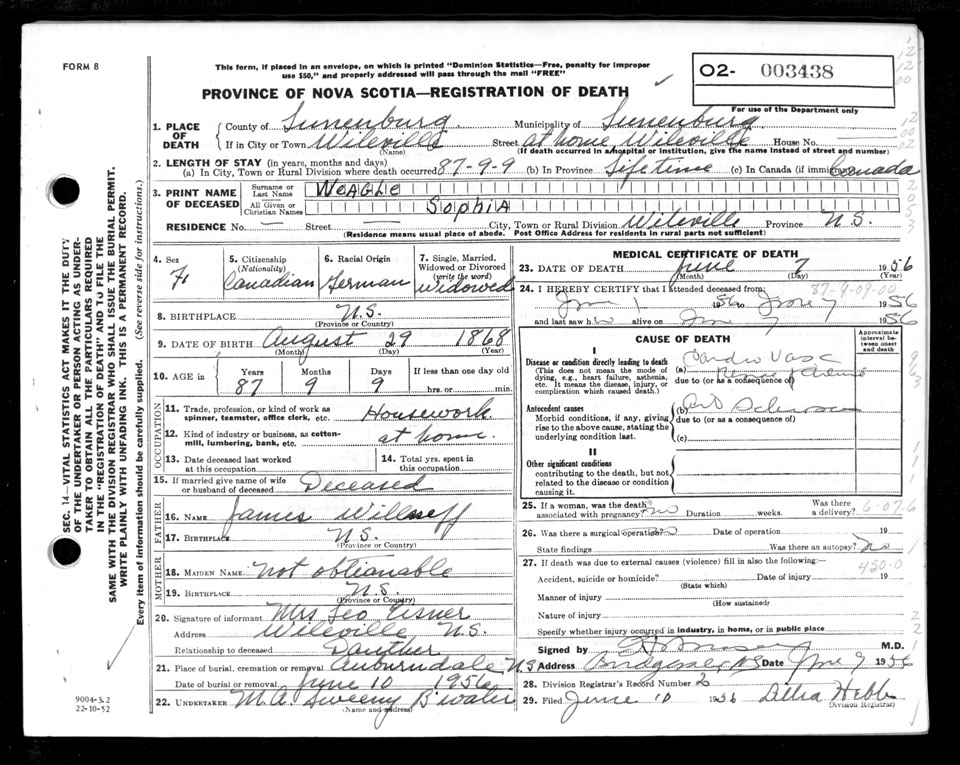 FORM 8
This form, if placed in an envelope, on which is printed "Dominion Statistics—Free, penalty for improper
use $50," and properly addressed will pass through the mail "FREE"
O2- 003438
PROVINCE OF NOVA SCOTIA—REGISTRATION OF DEATH
For use of the Department only
1. PLACE OF DEATH
County of Lunenburg Municipality of Lunenburg
If in City or Town Wileville Street at home, Wileville House No.
(Name) (If death occurred in a hospital or institution, give the name instead of street and number)
2. LENGTH OF STAY (in years, months and days)
(a) In City, Town or Rural Division where death occurred 87-9-9 (b) In Province Lifetime (c) In Canada (if immigrant) Canada
3. PRINT NAME OF DECEASED
Surname or Last Name WEAGLE
All Given or Christian Names SOPHIA
RESIDENCE No. — Street — City, Town or Rural Division Wileville Province N.S.
(Residence means usual place of abode. Post Office Address for residents in rural parts not sufficient)
4. Sex
F
5. Citizenship
(Nationality)
Canadian
6. Racial Origin
German
7. Single, Married,
Widowed or Divorced
(write the word)
Widowed
8. BIRTHPLACE N.S.
(Province or Country)
9. DATE OF BIRTH August 29 1868
(Month) (Day) (Year)
10. AGE in
Years Months Days If less than one day old
87 9 9 hrs. or min.
OCCUPATION
11. Trade, profession, or kind of work as
spinner, teamster, office clerk, etc. Housework
12. Kind of industry or business, as cotton-
mill, lumbering, bank, etc. at home.
13. Date deceased last worked
at this occupation
14. Total yrs. spent in
this occupation
15. If married give name of wife
or husband of deceased Deceased
FATHER
16. NAME James Willneff
17. BIRTHPLACE N.S.
(Province or Country)
MOTHER
18. MAIDEN NAME Not obtianable
19. BIRTHPLACE N.S.
(Province or Country)
20. Signature of informant Mrs Leo Eisner
Address Wileville N.S.
Relationship to deceased Daughter
21. Place of burial, cremation or removal Auburndale N.S.
Date of burial or removal June 10 1956
22. UNDERTAKER M.A. Sweeny B'water
(Name and address)
MEDICAL CERTIFICATE OF DEATH
23. DATE OF DEATH June 7 1956
(Month) (Day) (Year)
87-9-09-00
24. I HEREBY CERTIFY that I attended deceased from:
June 1 1956 to June 7 1956
and last saw h alive on June 7 1956
CAUSE OF DEATH
Approximate
interval be-
tween onset
and death
I
Disease or condition directly leading to death
(This does not mean the mode of
dying, e.g., heart failure, asthenia,
etc. It means the disease, injury, or
complication which caused death.)
(a) Cardio Vasc
due to (or as a consequence of)
Antecedent causes
Morbid conditions, if any, giving
rise to the above cause, stating the
underlying condition last.
(b)
due to (or as a consequence of)
(c)
II
Other significant conditions
contributing to the death, but not
related to the disease or condition
causing it.
25. If a woman, was the death
associated with pregnancy? no Duration weeks. Was there
a delivery?
6-07-6
26. Was there a surgical operation? no Date of operation 19
State findings Was there an autopsy? no
27. If death was due to external causes (violence) fill in also the following:—
450-0
Accident, suicide or homicide? Date of injury 19
(State which)
Manner of injury
(How sustained)
Nature of injury
Specify whether injury occurred in industry, in home, or in public place
Signed by M.D.
Address Bridgewater N.S. Date June 9 1956
28. Division Registrar's Record Number 2
29. Filed June 10 1956 Hebb
(Division Registrar)
SEC. 14—VITAL STATISTICS ACT MAKES IT THE DUTY
OF THE UNDERTAKER OR PERSON ACTING AS UNDER-
TAKER TO OBTAIN ALL THE PARTICULARS REQUIRED
IN THE "REGISTRATION OF DEATH" AND TO FILE THE
SAME WITH THE DIVISION REGISTRAR WHO SHALL ISSUE THE BURIAL PERMIT.
WRITE PLAINLY WITH UNFADING INK. THIS IS A PERMANENT RECORD.
Every item of information should be carefully supplied. (See reverse side for instructions.)
9004-3.2
22-10-52